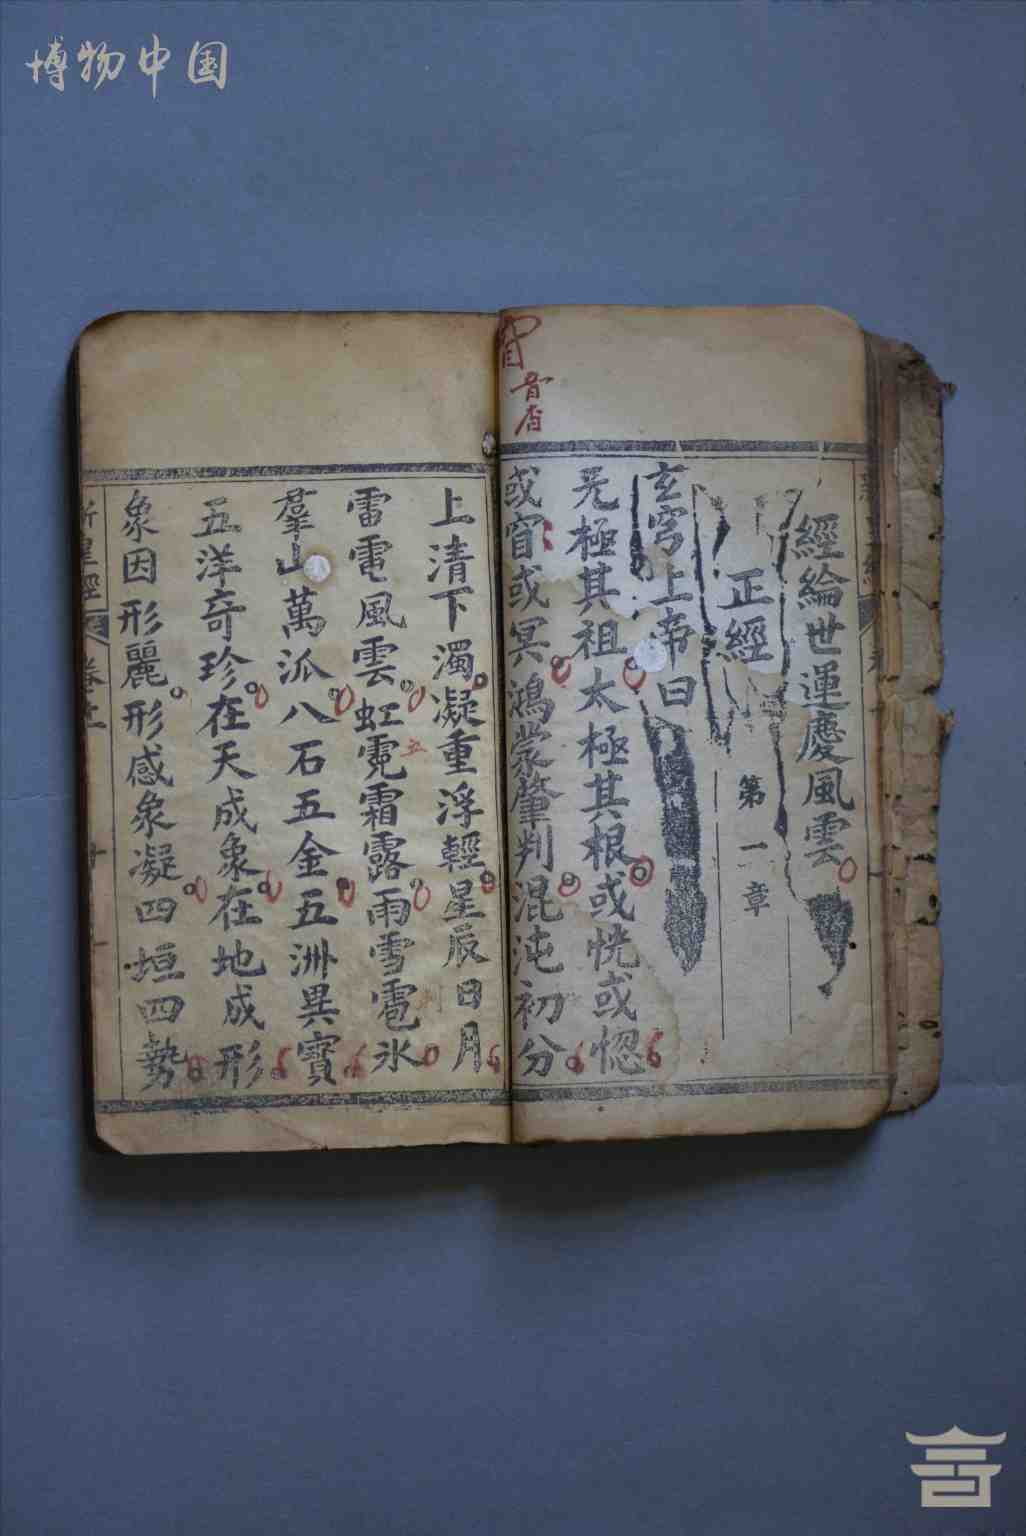 博物中国
經綸世運慶風雲
正經
第一章
玄穹上帝曰
旡極其祖太極其根或恍或惚
或窅或冥鴻蒙肇判混沌初分
上清下濁凝重浮輕星辰日月
雷電風雲虹霓霜露雨雪雹氷
羣山萬派八石五金五洲異寶
五洋奇珍在天成象在地成形
象因形麗形感象凝四垣四勢
皇經